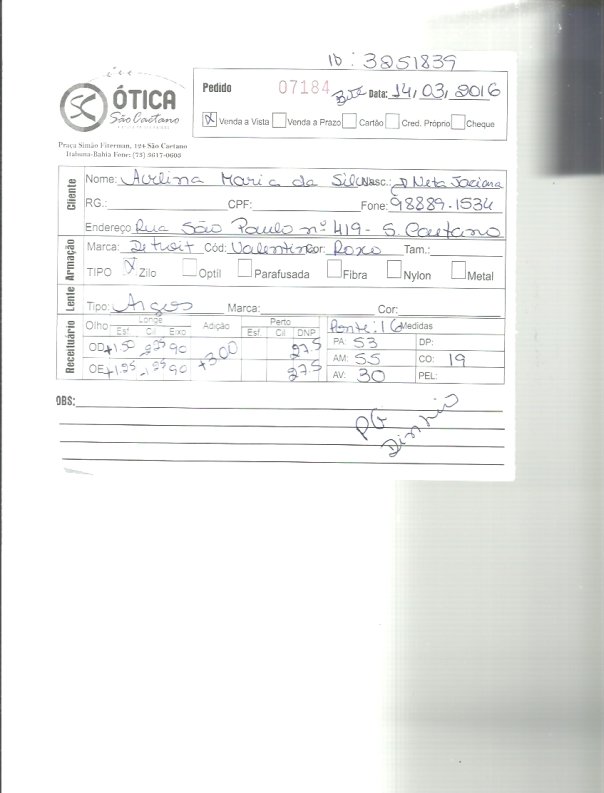 ID: 3251839
ÓTICA
São Caetano
Pedido 07184 Data: 14/03/2016
X Venda a Vista Venda a Prazo Cartão Cred. Próprio Cheque
Praça Simão Fiterman, 124 São Caetano
Itabuna-Bahia Fone: (73) 3617-0600
Cliente
Nome: Avelina Maria da Silva Nasc.: Neta Joziana
RG.: CPF: Fone: 98889.1534
Endereço Rua São Paulo nº 419 - S. Caetano
Armação
Marca: Detroit Cód: Valentine Cor: Roxo Tam.:
TIPO X Zilo Optil Parafusada Fibra Nylon Metal
Lente
Tipo: Argos Marca: Cor:
Receituário
Olho Longe Adição Perto Ponte: 16 Medidas
Esf Cil Eixo Esf. Cil DNP
OD +1.50 90 +3.00 27.5 PA: 53 DP:
OE +1.25 90 27.5 AM: 55 CO: 19
AV: 30 PEL:
OBS:
PG